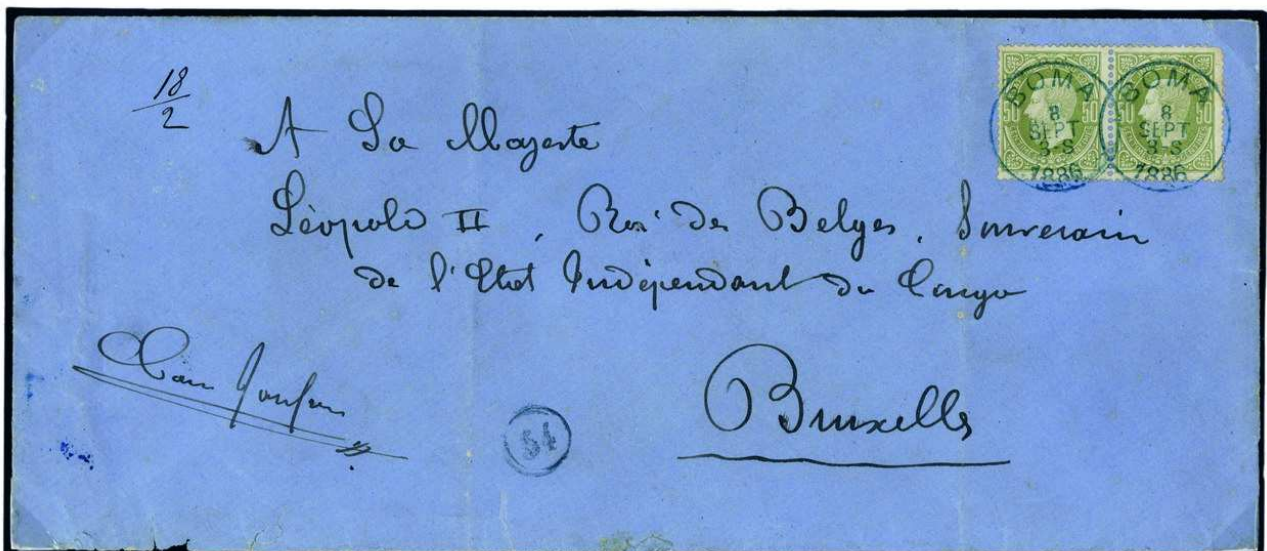 18
2
A Sa Majeste
Léopold II, Roi des Belges, Souverain
de l'Etat Indépendant du Congo
Bruxelles
54
BOMA
8
SEPT
3-S
1886
BOMA
8
SEPT
3-S
1886
50
50